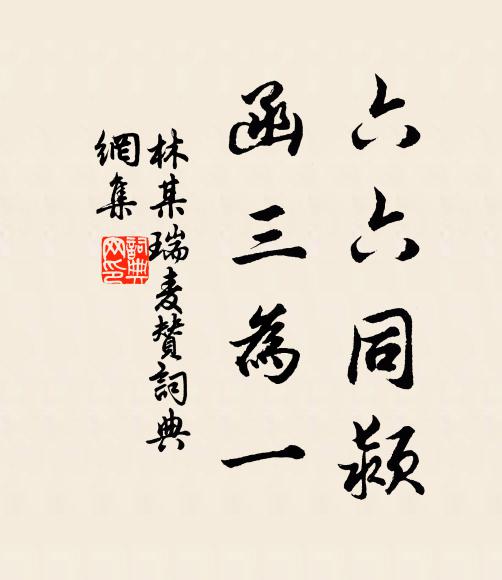 六六同颖
函三為一
林某瑞麦贊詞典
網集
詞典
网印